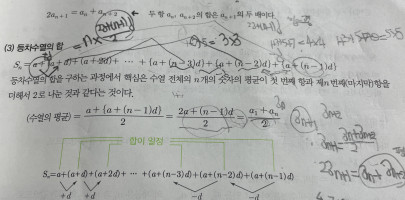 2aₙ₊₁=aₙ+aₙ₊₂ ← 두 항 aₙ, aₙ₊₂의 합은 aₙ₊₁의 두 배이다.
(3) 등차수열의 합
1+3+5=3x3
Sₙ=a+(a+d)+(a+2d)+ ⋯ +{a+(n-3)d}+{a+(n-2)d}+{a+(n-1)d}
등차수열의 합을 구하는 과정에서 핵심은 수열 전체의 n개의 숫자의 평균이 첫 번째 항과 제n 번째(마지막)항을
더해서 2로 나눈 것과 같다는 것이다.
(수열의 평균)=a+{a+(n-1)d}/2=2a+(n-1)d/2=a₁+aₙ/2
합이 일정
Sₙ=a+(a+d)+(a+2d)+ ⋯ +(a+(n-3)d)+(a+(n-2)d)+(a+(n-1)d)
+d +d -d -d